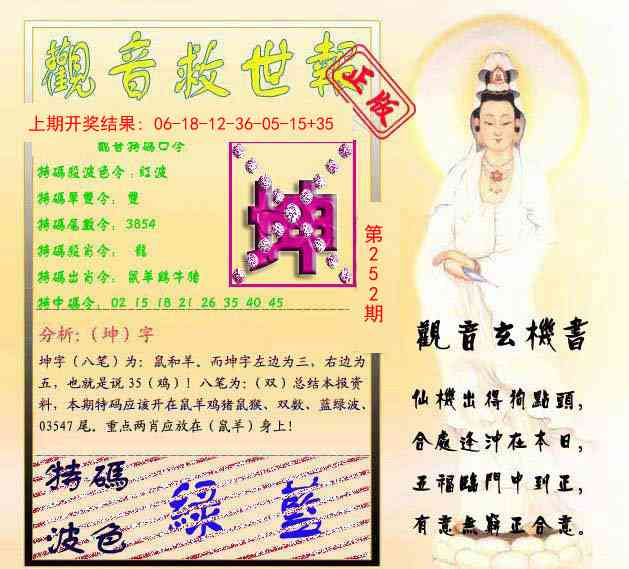 觀音救世報
正版
上期开奖结果：06-18-12-36-05-15+35
觀音特碼口令
特碼殺波色令：紅波
特碼單雙令： 雙
特碼尾數令：3854
特碼殺肖令： 龍
特碼出肖令：鼠羊鷄牛豬
特中碼令：02 15 18 21 26 35 40 45
坤
第252期
分析:（坤）字
坤字（八笔）为：鼠和羊。而坤字左边为三，右边为
五，也就是说 35（鸡）！八笔为：（双）总结本报资
料，本期特码应该开在鼠羊鸡猪鼠猴、双数、蓝绿波、
03547 尾。重点两肖应放在（鼠羊）身上！
特碼
波色
綠 藍
觀音玄機書
仙機出得狗點頭，
合處逢沖在本日，
五福臨門中到正，
有意無辭正合意。